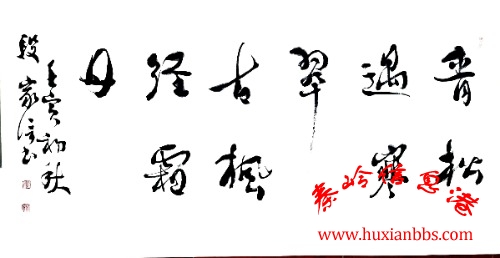 青松
遇寒
翠
古楓
经霜
丹
壬寅初秋
家信书
秦岭
www.huxianbbs.com